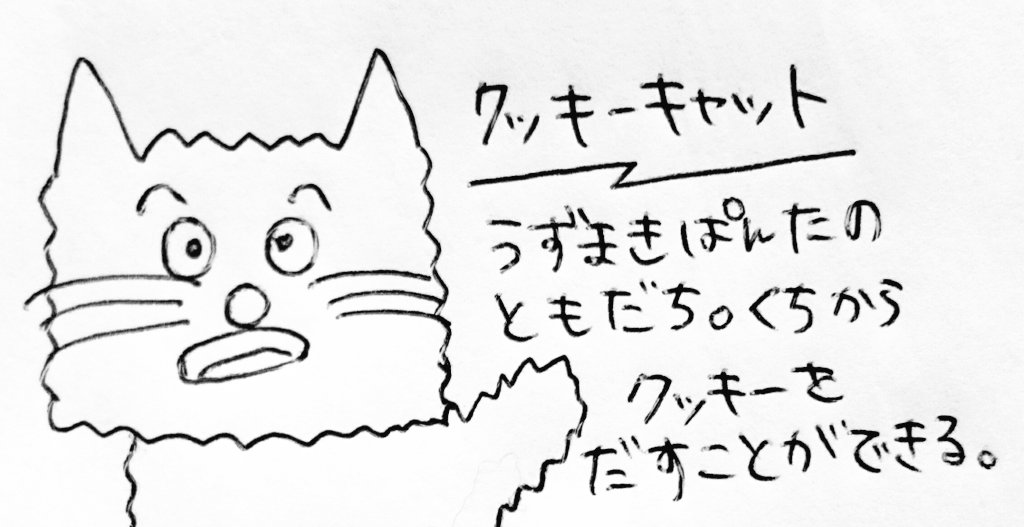 クッキーキャット
うずまきぱんたの
ともだち。くちから
クッキーを
だすことができる。